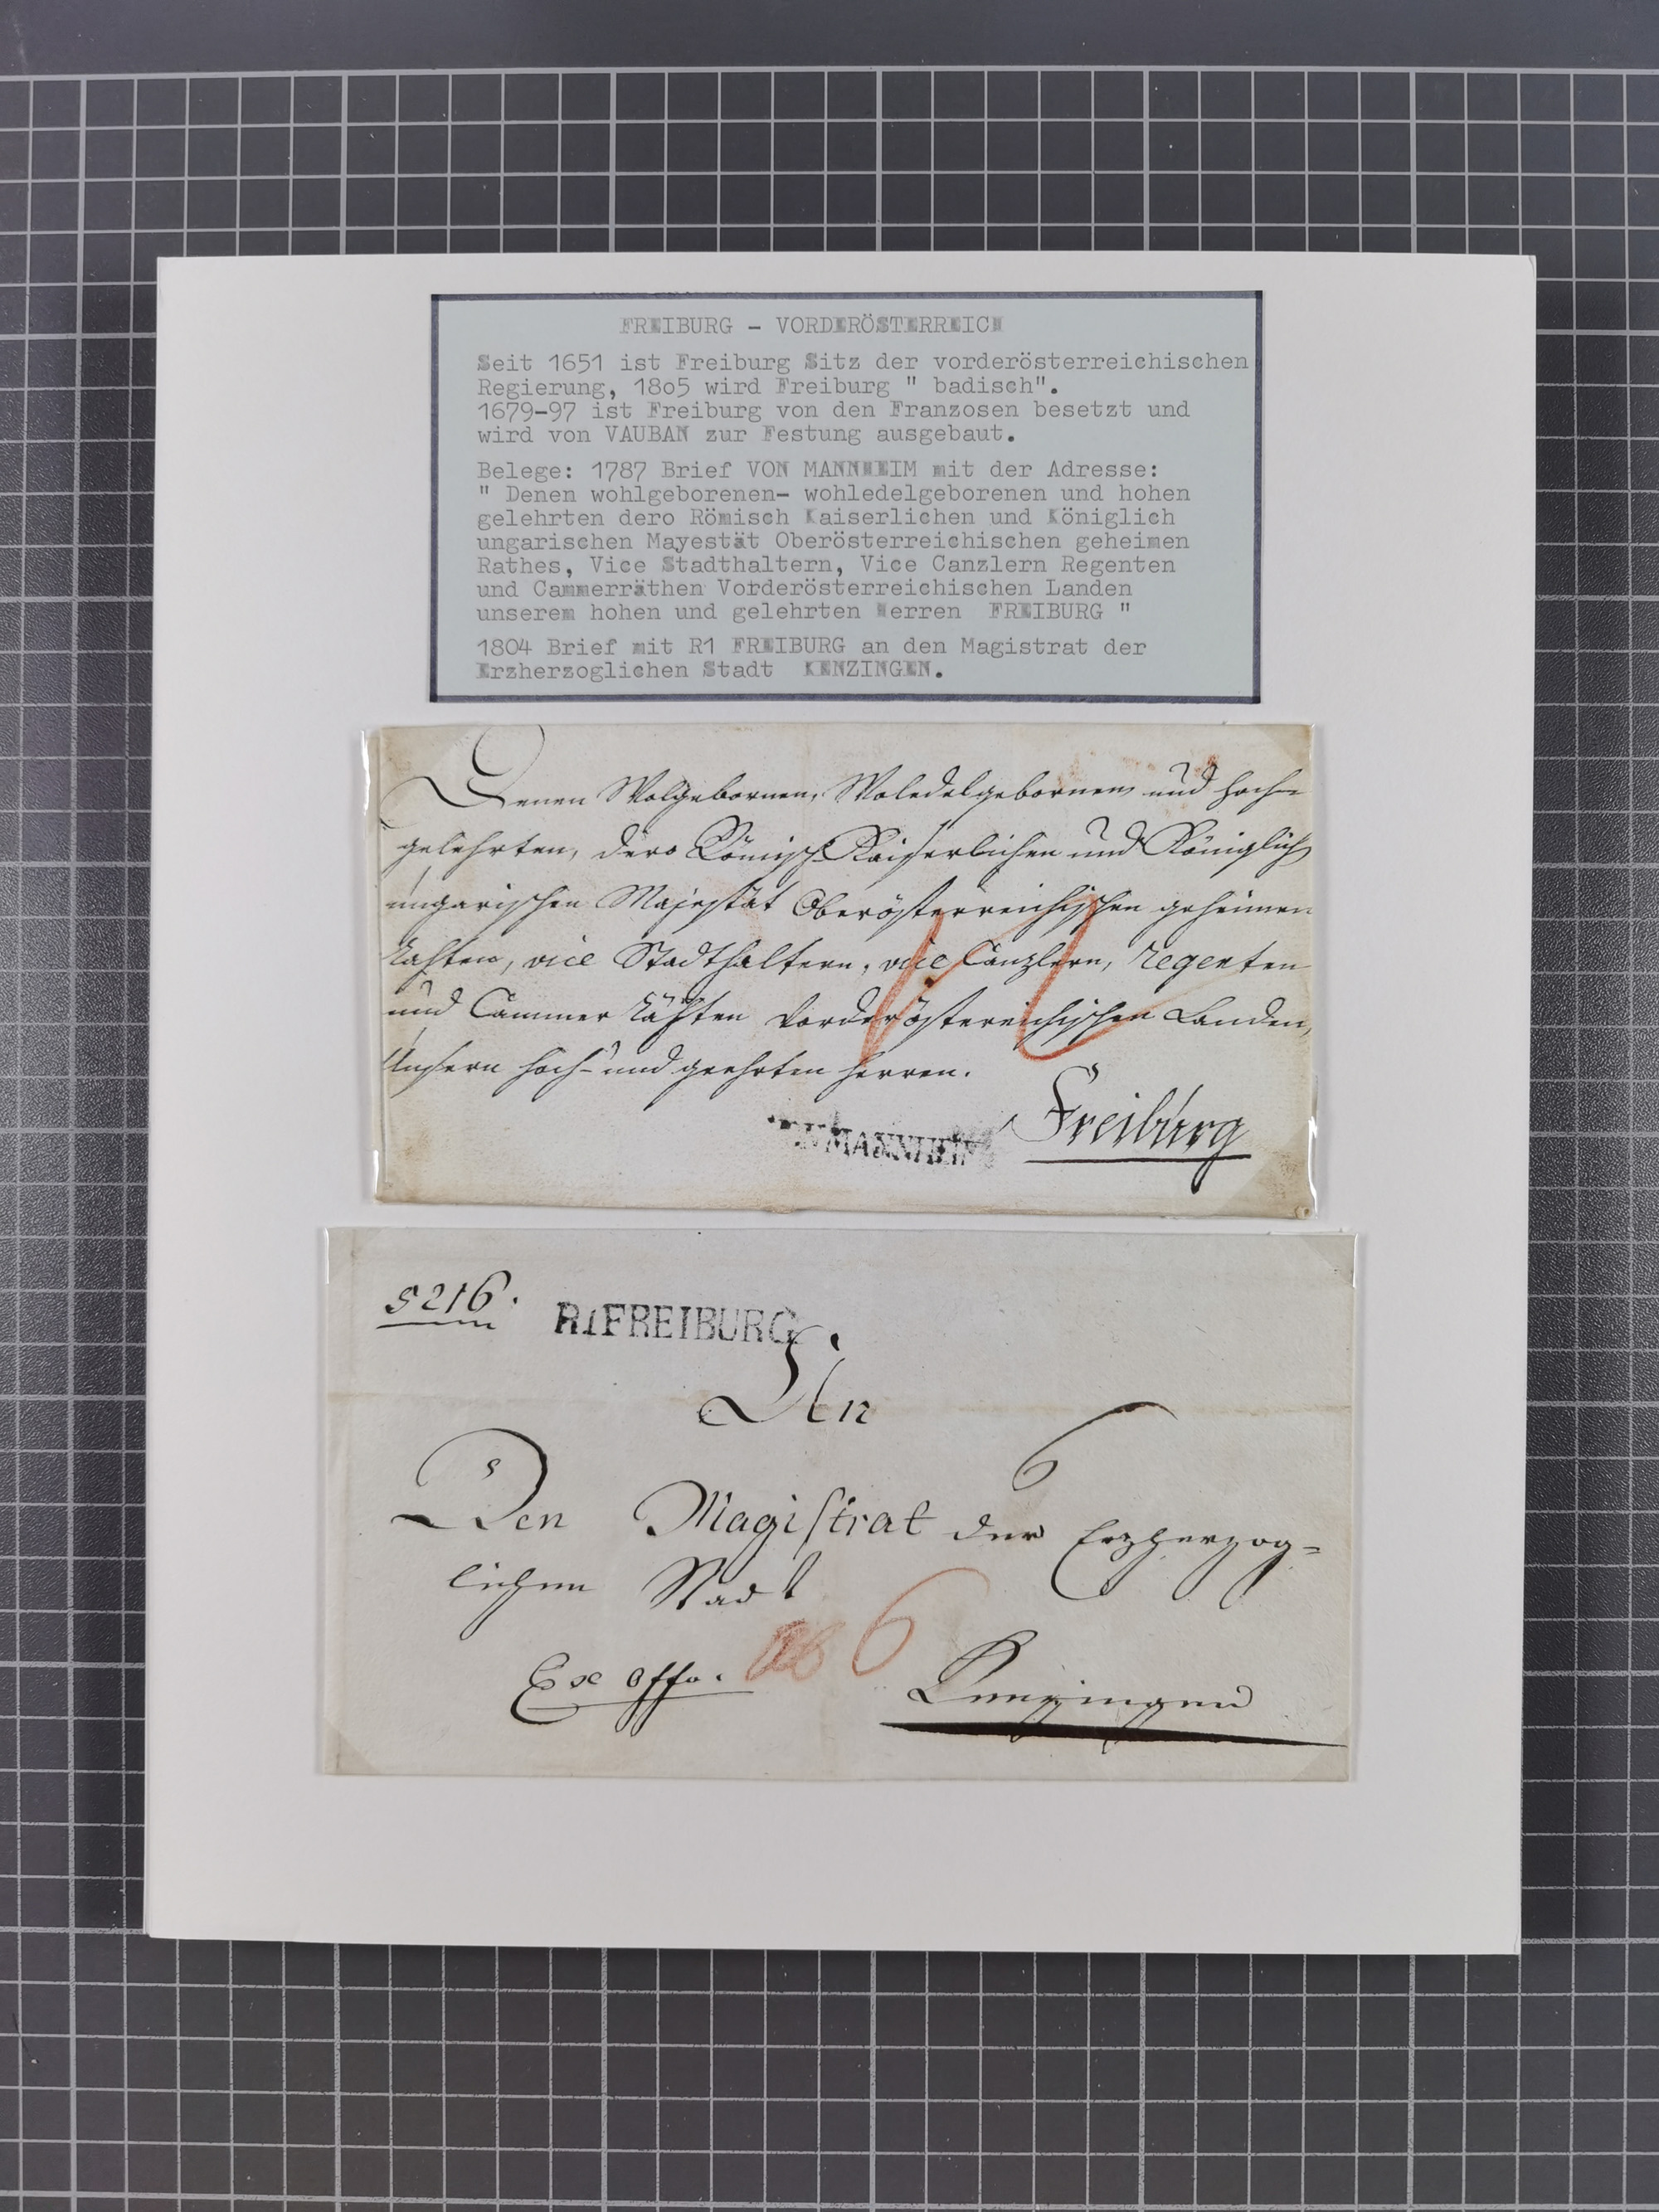 FREIBURG - VORDERÖSTERREICH
Seit 1651 ist Freiburg Sitz der vorderösterreichischen
Regierung, 18o5 wird Freiburg " badisch".
1679-97 ist Freiburg von den Franzosen besetzt und
wird von VAUBAN zur Festung ausgebaut.
Belege: 1787 Brief VON MANNHEIM mit der Adresse:
" Denen wohlgeborenen- wohledelgeborenen und hohen
gelehrten dero Römisch Kaiserlichen und Königlich
ungarischen Mayestät Oberösterreichischen geheimen
Rathes, Vice Stadthaltern, Vice Canzlern Regenten
und Cammerräthen Vorderösterreichischen Landen
unserem hohen und gelehrten Herren FREIBURG "
1804 Brief mit R1 FREIBURG an den Magistrat der
Erzherzoglichen Stadt KENZINGEN.
Denen Wolgebornen, Woledelgebornen und hoch-
gelehrten, dero Römisch Kaiserlichen und Königlich
ungarischen Majestät Oberösterreichischen geheimen
Rahten, vice Stadthaltern, vice Canzlern, Regenten
und Cammer Rähten Vorderöstereichischen Landen,
Unsern hoch- und geehrten Herren.
MANNHEIM Freiburg
5216. R1FREIBURG
An
6
Den Magistrat der Erzherzog=
lichen Stadt
Ex offo. 6 Kenzingen